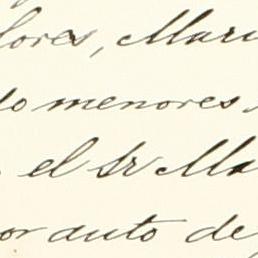 lores, Mari
do menores
el Sr Ma
or auto de